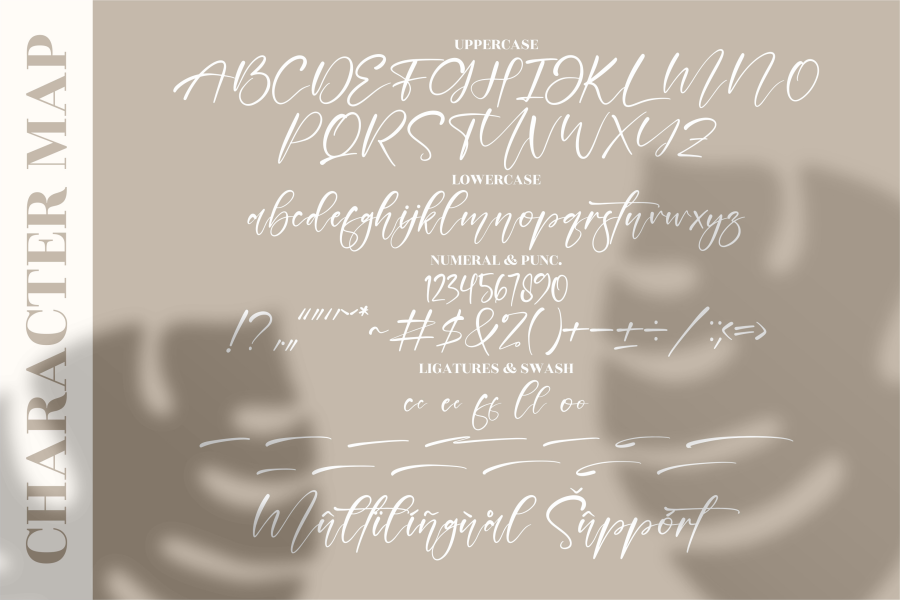 CHARACTER MAP
UPPERCASE
ABCDEFGHIJKLMNO
PQRSTUVWXYZ
LOWERCASE
abcdefghijklmnopqrstuvwxyz
NUMERAL & PUNC.
1234567890
!?,.„""''~*~#$&%()+−±÷/:;<=>
LIGATURES & SWASH
cc ee ff ll oo
Mûltïlíñgùål Šûppört